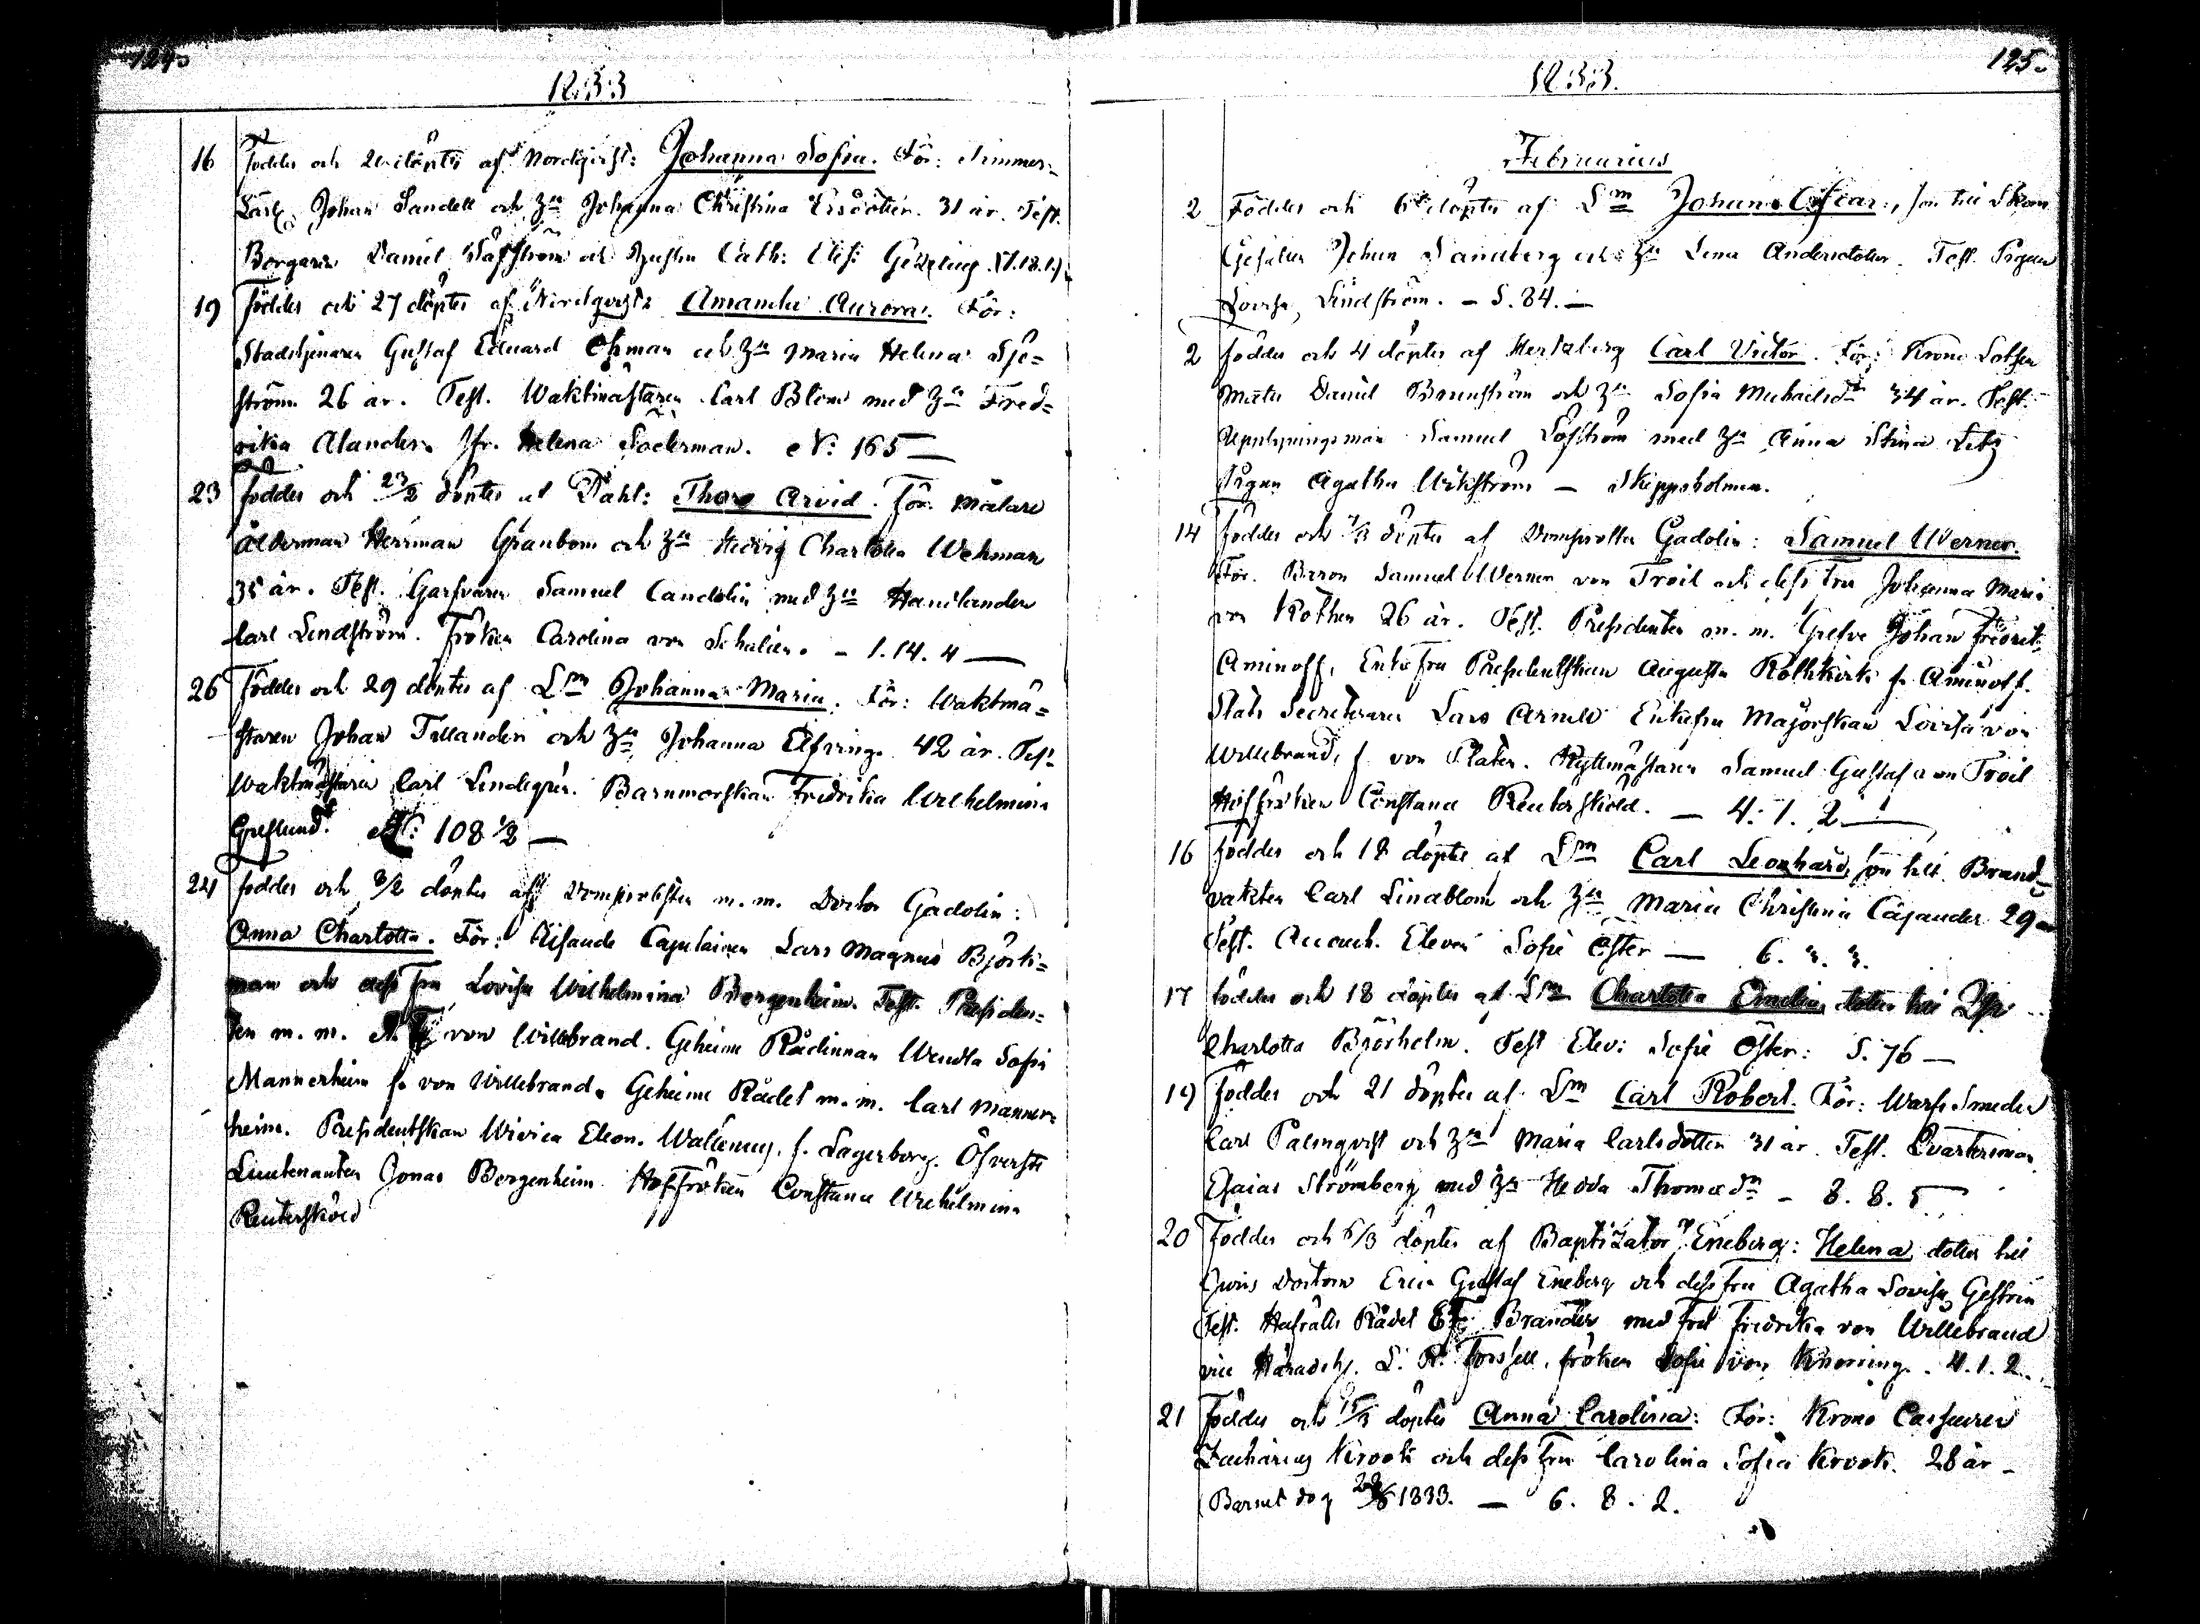 124.
1833
16 Föddes och 20 döptes af Nordqvist: Johanna Sofia. För: Timmer-
Karl. Johan Sandell och h:u Johanna Christina Ersdotter. 31 år. Test.
Borgaren Daniel Säfström och Hustru Cath: Elis:
19 Föddes och 27 döptes af Nordqvist: Amanda Aurora. För:
Stadstjenaren Gustaf Eduard Öhman och h:u Maria Helena Sjö=
ström 26 år. Test. Waktmästaren Carl Blom med h:u Fred=
rika Alander. Jfr. Helena Söderman. N: 165 —
23 föddes och 23/2 döptes af Dahl: Thure Arvid. För. Målare
ålderman Herrman Granbom och h:u Hedvig Charlotta Wehman
35 år. Test. Garfvaren Samuel Candolin med h:u Handlanden
Carl Lindström. Fröken Carolina von Schalien. - 1. 14. 4 —
26 Föddes och 29 döptes af L:m Johanna Maria. För: Waktmä=
staren Johan Tillander och h:u Johanna Elfving. 42 år. Test.
Waktmästaren Carl Lindegrén. Barnmorskan Fredrika Wilhelmina
Greslund. N: 108 1/2 —
24 föddes och 3/2 döptes af Domprobsten m. m. Doctor Gadolin:
Anna Charlotta. För: Capitainen Lars Magnus Björk=
man och dess fru Lovisa Wilhelmina Bergenheim. Test. Presiden=
ten m. m. von Willebrand. Geheime Rådinnan Wendla Sofia
Mannerheim f. von Willebrand. Geheime Rådet m. m. Carl Manner=
heim. Presidentskan Wivica Eleon. Wallenius, f. Lagerborg. Öfverste
Lieutenanten Jonas Bergenheim. Hoffröken Constance Wilhelmina
Reutersköld
125.
1833.
Februarius
2 Föddes och 6 döptes af L:m Johan Oscar, son till Skom.
Gesällen Johan Sandberg och h:u Lena Andersdotter. Test. Pigan
Lovisa Lindström. - S. 84. —
2 föddes och 4 döptes af Hertzberg Carl Victor. För: Krono Lotsen
Daniel Brunström och h:u Sofia Michaelsd:r 34 år. Test.
Uppsyningsman Samuel Löfström med h:u Anna Stina
Pigan Agatha Wikström — Skeppsholmen.
14 föddes och 7/3 döptes af Domprosten Gadolin: Samuel Werner.
För. Baron Samuel Werner von Troil och dess Fru Johanna Maria
von Kothen 26 år. Test. Presidenten m. m. Grefve Johan Fredrik
Aminoff, Enkefru Presidentskan Augusta Rothkirk f. Aminoff.
Stats Secreteraren Lars Arnell Enkefru Majorskan Lovisa von
Willebrand, f. von Platen. Ryttmästaren Samuel Gustaf von Troil
Hoffröken Constance Reuterskiöld. — 4. 1. 2 —
16 föddes och 18 döptes af L:m Carl Leonhard, son till Brand-
vakten Carl Lindblom och h:u Maria Christina Cajander 29 år
Test. Accouch. Eleven Sofie Öster — 6. 3. 3.
17 föddes och 18 döptes af L:m Charlotta Emelia, dotter till
Charlotta Björholm. Test Elev: Sofie Öster: S. 76 —
19 föddes och 21 döptes af L:m Carl Robert. För: Warfs Smeden
Carl Palmqvist och h:u Maria Carlsdotter 31 år. Test. Qvartersman
Esaias Strömberg med h:u Hedda Thomæd:r - 8. 8. 5
20 Föddes och 6/3 döptes af Baptizator Eneberg: Helena dotter till
Juris Doctorn Eric Gustaf Eneberg och dess fru Agatha Lovisa Gestrin
Test. Hofrätts Rådet Brander med Fru Fredrika von Willebrand
vice Häradsh. L. R. Forssell, fröken Sofie von Knorring. 4. 1. 2.
21 föddes och 15/3 döptes Anna Carolina: För: Krono Casseuren
Zacharias Krook och dess fru Carolina Sofia Krook. 28 år -
Barnet dog 1833. — 6. 8. 2.